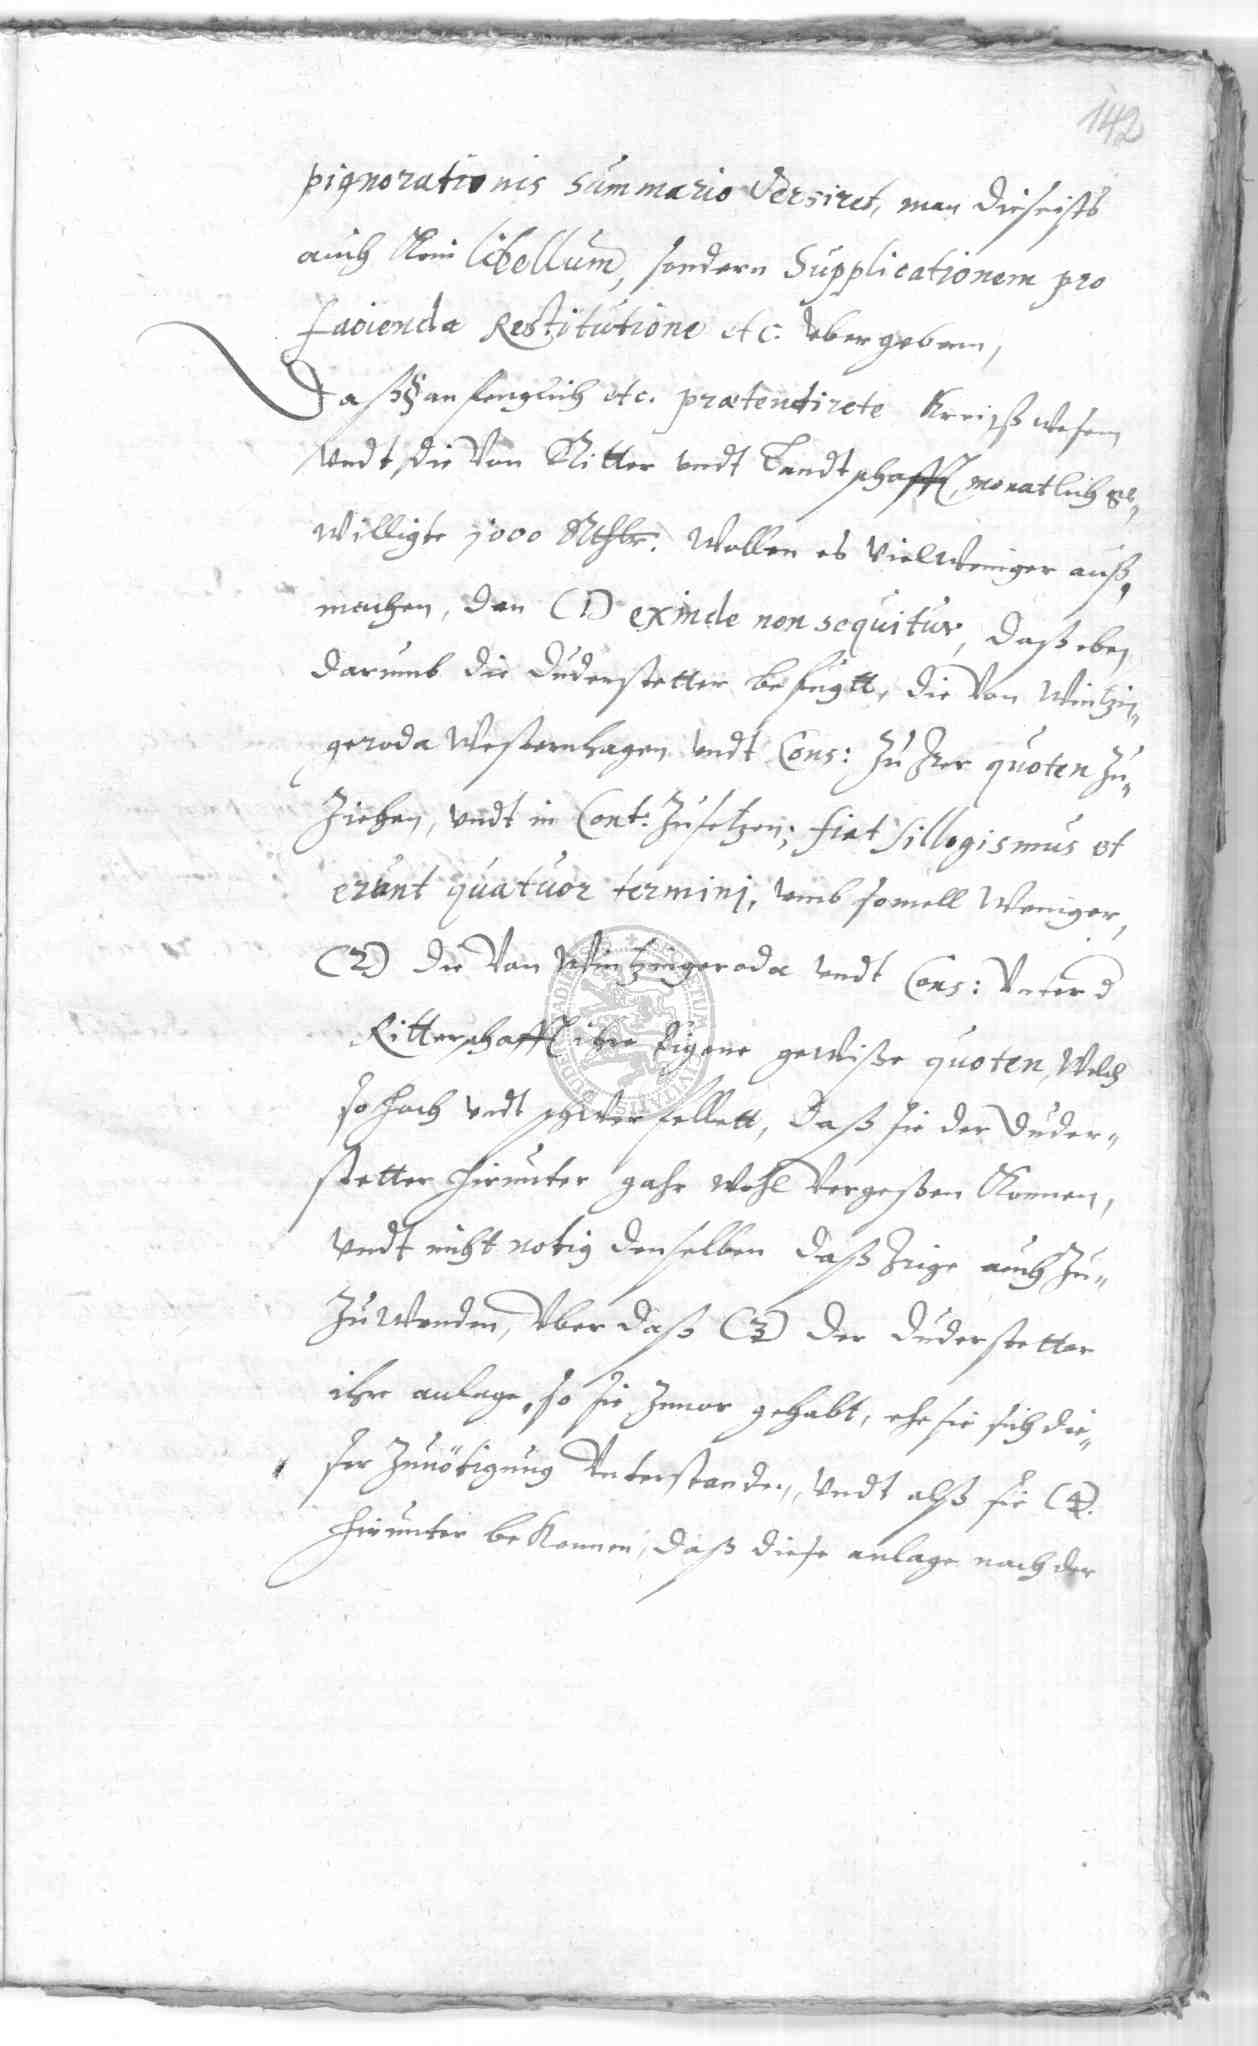 142
pignorationis Summario Versiret, man dieseits
auch Kein libellum, sondern Supplicationem pro
facienda Restitutione etc. übergeben,
Daß § anfenglich etc. prætendirete Kreißwesen
vndt die Von Ritter vndt Landtschafft, monatlich ge-
willigte 1000 Rthlr. Wollen es Vielweniger auß,
machen, dan (1) exinde non sequitur, daß eben
darumb die Duderstetter befugtt, die Von Wintzin-
geroda Westernhagen vndt Cons: Zu Irer quoten Zu-
Ziehen, vndt in Cont. Zusetzen; fiat sillogismus et
erunt quatuor terminj, vmb somell Weniger,
(2) die Von Wintzingeroda vndt Cons: Vnter d
Ritterschafft ihre Eigene gewiße quoten, Welch
so hoch vndt schwer fellett, Daß sie der Duder-
stetter hirunter gahr wohl Vergeßen Können,
vndt nicht notig denselben daß Irige auch Zu-
Zuwenden, Vber daß (3) der Duderstetter
ihre anlage, so sie Zuuor gehabt, ehe sie sich die-
ser Zunötigung Vnterstanden, vndt alß sie (4).
hirunter beKennen, daß diese anlage nach der
SIGILLUM CIVITATIS DUDERSTADIENSIS